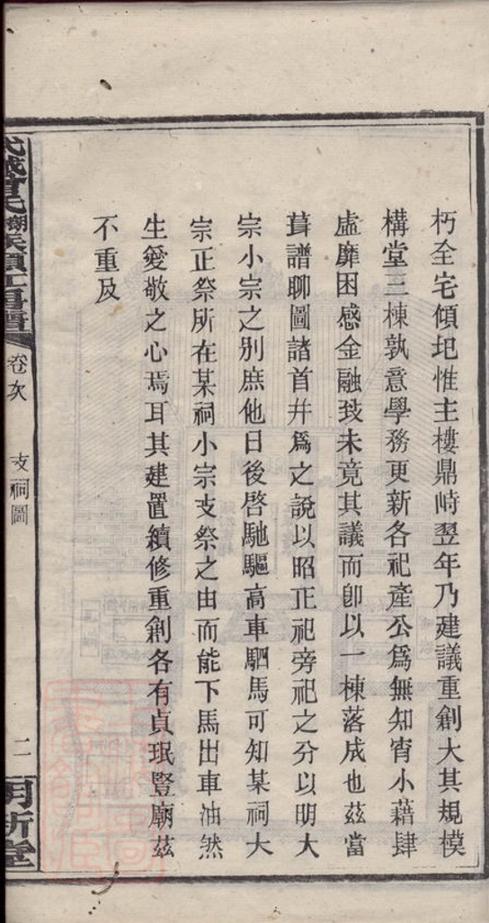 朽全宅傾圯惟主樓鼎峙翌年乃建議重創大其規模
構堂三棟孰意學務更新各祀產公爲無知宵小藉肆
虛靡困感金融致未竟其議而卽以一棟落成也茲當
葺譜聊圖諸首幷爲之說以昭正祀旁祀之分以明大
宗小宗之別庶他日後啓馳驅高車駟馬可知某祠大
宗正祭所在某祠小宗支祭之由而能下馬出車油然
生愛敬之心焉耳其建置續修重創各有貞珉豎廟茲
不重及
卷次
支祠圖
二